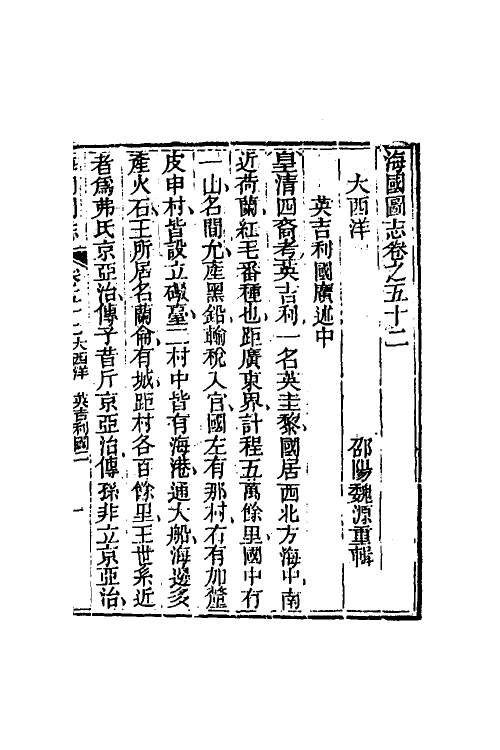 海國圖志卷之五十二
大西洋 邵陽魏源重輯
英吉利國廣述中
皇清四裔考英吉利一名英圭黎國居西北方海中南
近荷蘭紅毛番種也距廣東界計程五萬餘里國中有
一山名間允產黑鉛輸稅入官國左有那村右有加釐
皮申村皆設立礮臺二村中皆有海港通大船海邊多
產火石王所居名蘭倫有城距村各百餘里王世系近
者為弗氏京亞治傳子昔斤京亞治傳孫非立京亞治
卷五十二大西洋 英吉利國二 一